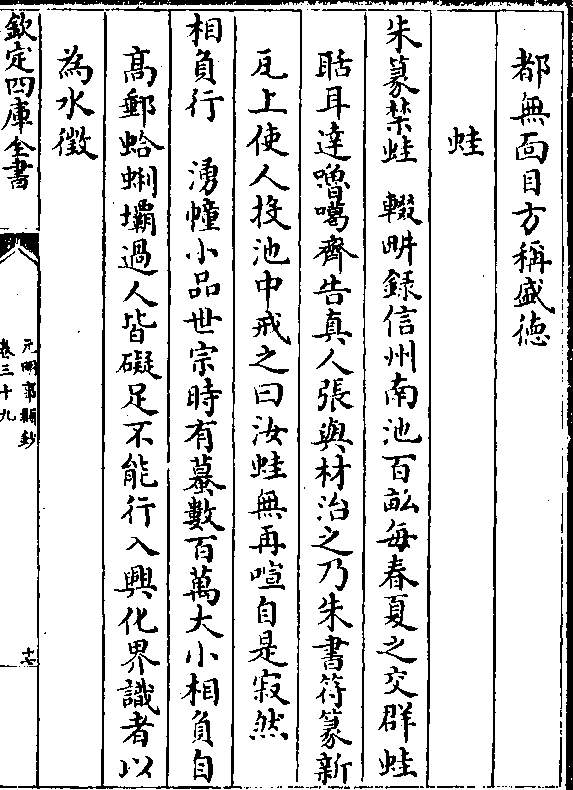 都無面目方稱盛徳
蛙
朱篆禁蛙　輟畊錄信州南池百畝每春夏之交群蛙
聒耳達嚕噶齊告真人張與材治之乃朱書符篆新
瓦上使人投池中戒之曰汝蛙無再喧自是寂然
相負行　湧幢小品世宗時有蟇數百萬大小相負自
髙郵蛤蜊壩過人皆礙足不能行入興化界識者以
為水徴
欽定四庫全書
元明事類鈔
卷三十九
十七